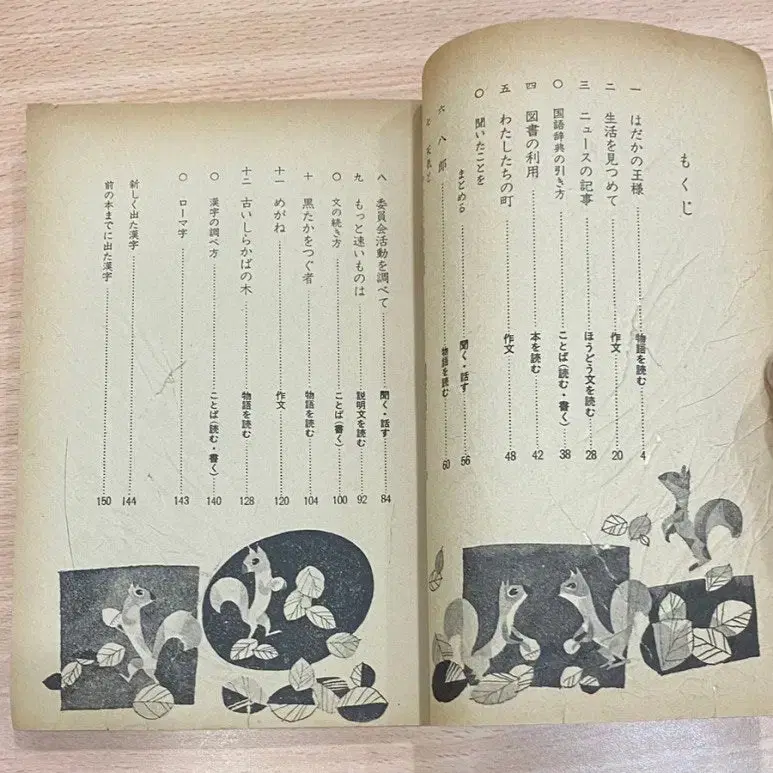 もくじ
一 はだかの王様 物語を読む 4
二 生活を見つめて 作文 20
三 ニュースの記事 ほうどう文を読む 28
〇 国語辞典の引き方 ことば(読む・書く) 38
四 図書の利用 本を読む 42
五 わたしたちの町 作文 48
〇 聞いたことを
まとめる 聞く・話す 56
六 八郎 物語を読む 60
八 委員会活動を調べて 聞く・話す 84
九 もっと速いものは 説明文を読む 92
〇 文の続き方 ことば(書く) 100
十 黒たかをつぐ者 物語を読む 104
十一 めがね 作文 120
十二 古いしらかばの木 物語を読む 128
〇 漢字の調べ方 ことば(読む・書く) 140
〇 ローマ字 143
新しく出た漢字 144
前の本までに出た漢字 150